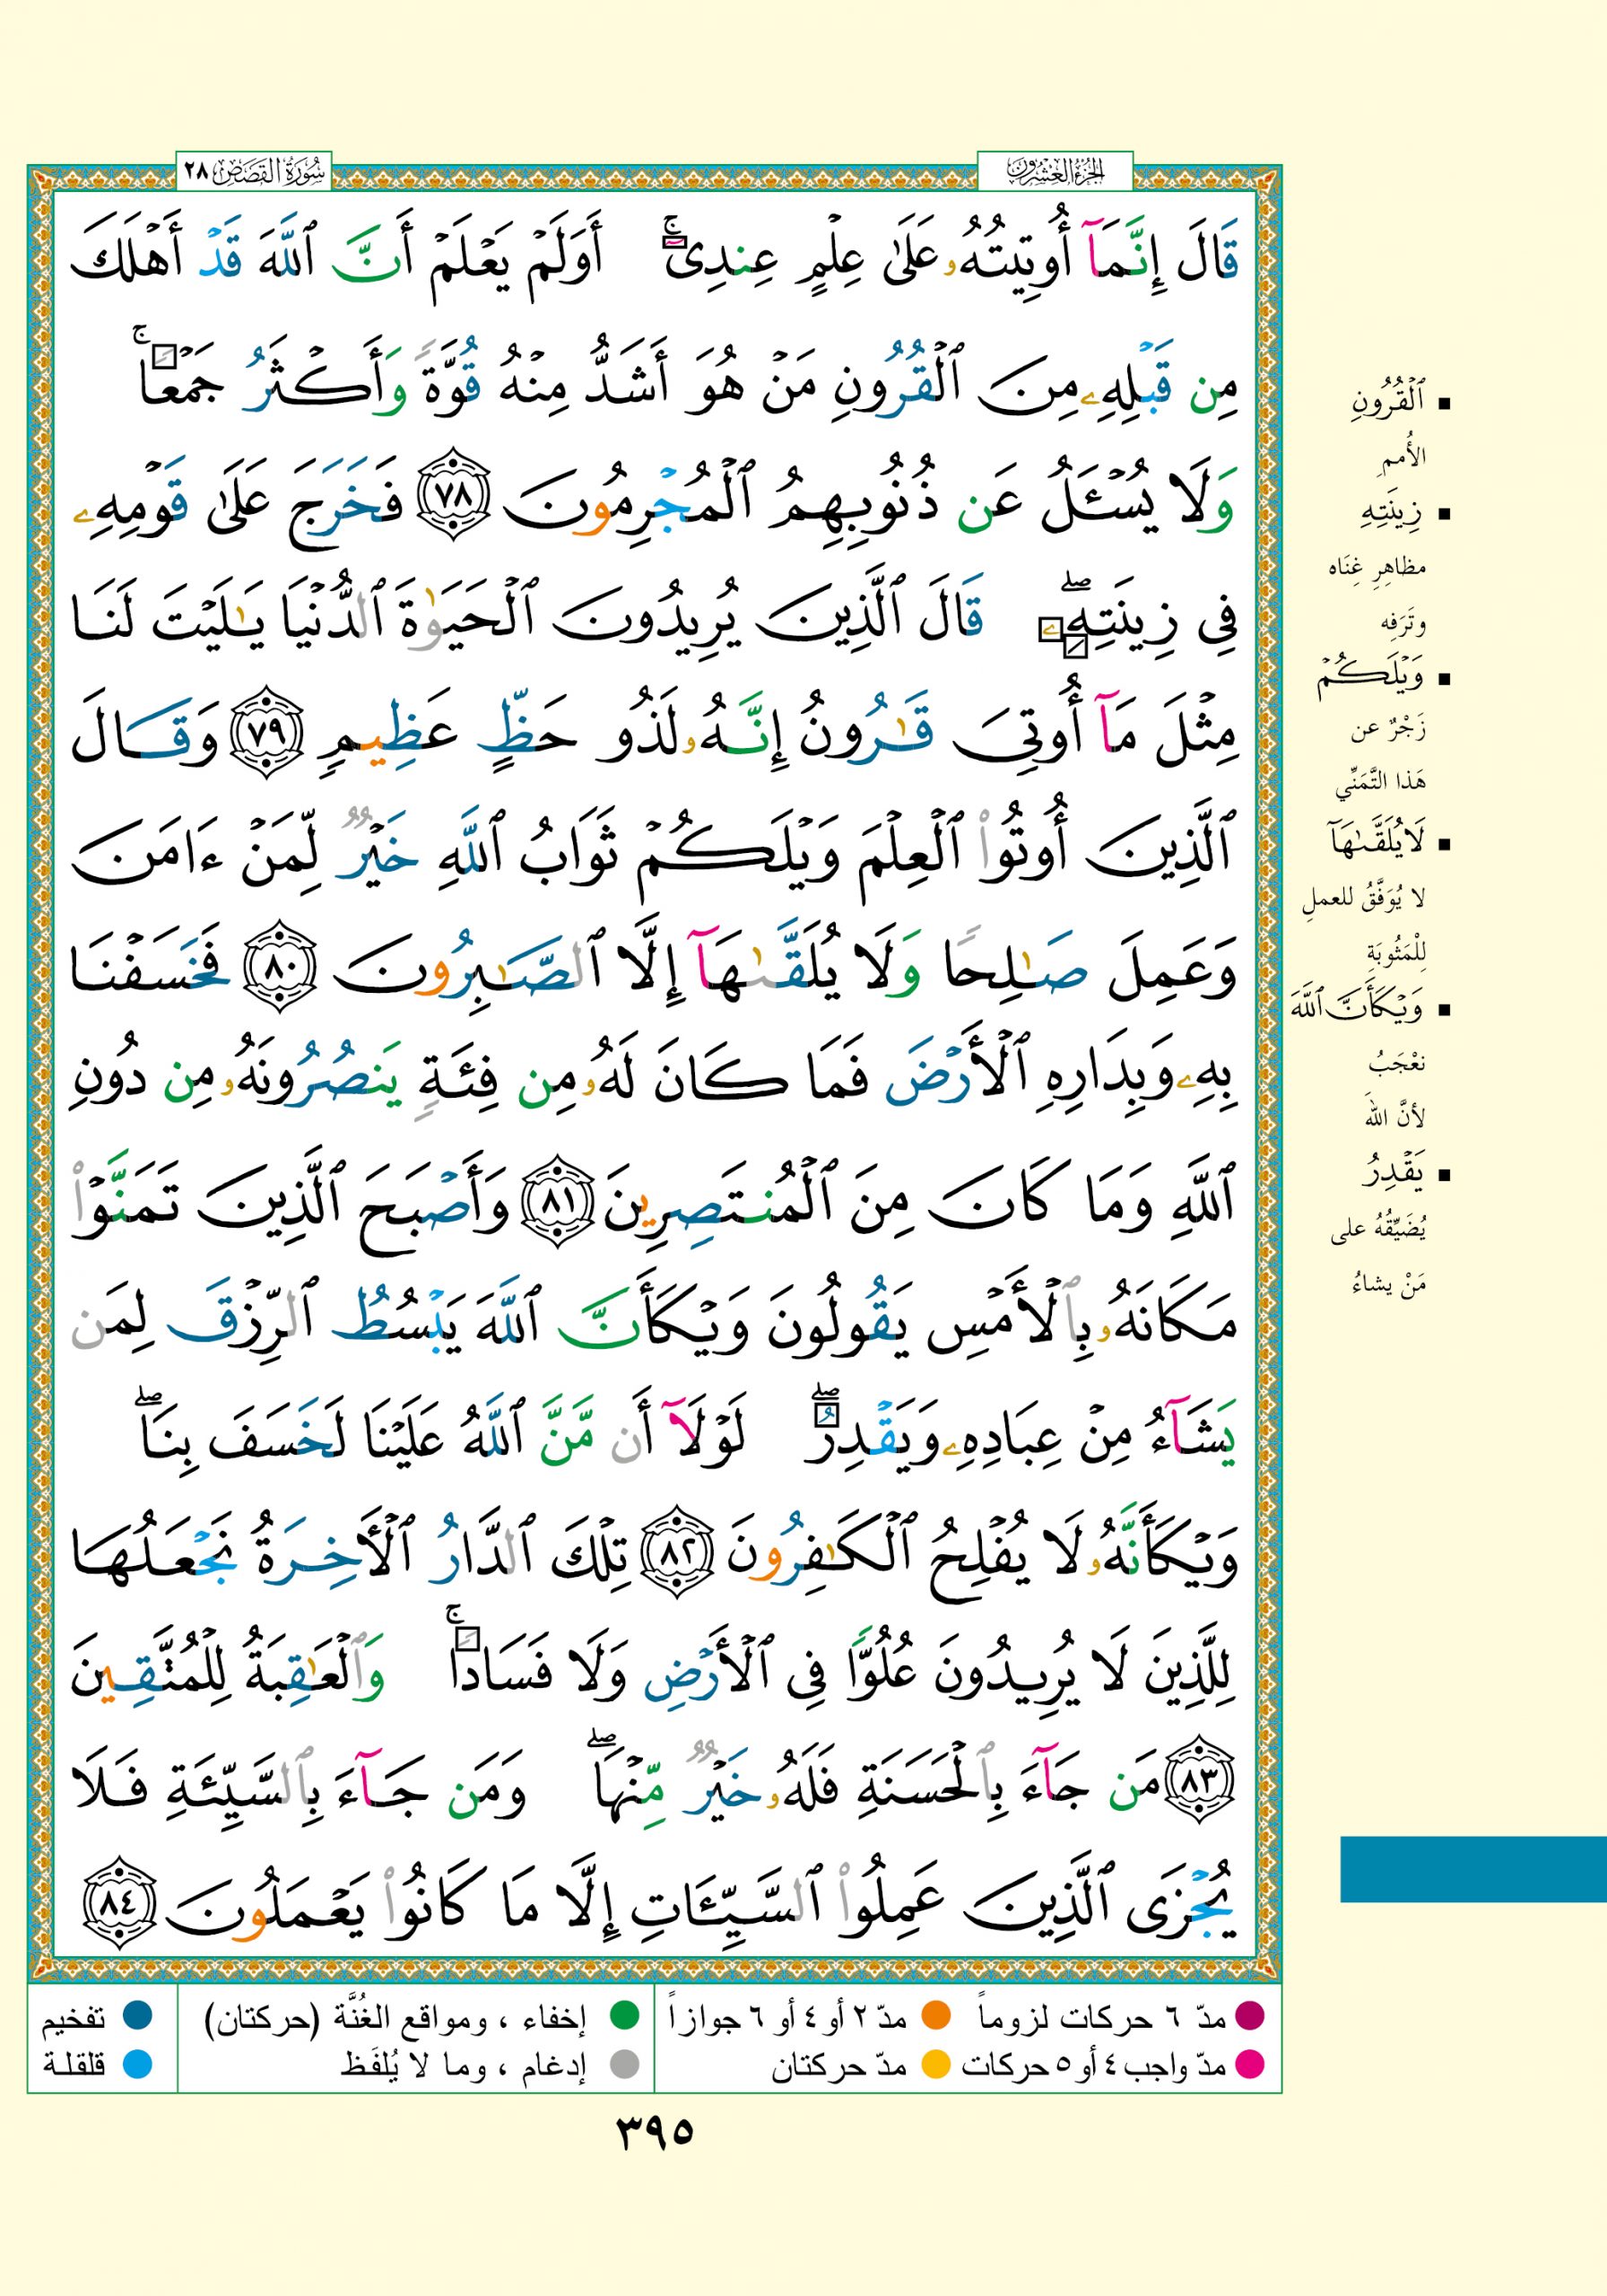 الجزء العشرون
سورة القصص ٢٨
قَالَ إِنَّمَآ أُوتِيتُهُۥ عَلَىٰ عِلْمٍ عِندِىٓ ۚ أَوَلَمْ يَعْلَمْ أَنَّ ٱللَّهَ قَدْ أَهْلَكَ
مِن قَبْلِهِۦ مِنَ ٱلْقُرُونِ مَنْ هُوَ أَشَدُّ مِنْهُ قُوَّةً وَأَكْثَرُ جَمْعًا ۚ
وَلَا يُسْـَٔلُ عَن ذُنُوبِهِمُ ٱلْمُجْرِمُونَ ٧٨ فَخَرَجَ عَلَىٰ قَوْمِهِۦ
فِى زِينَتِهِۦ ۖ قَالَ ٱلَّذِينَ يُرِيدُونَ ٱلْحَيَوٰةَ ٱلدُّنْيَا يَـٰلَيْتَ لَنَا
مِثْلَ مَآ أُوتِىَ قَـٰرُونُ إِنَّهُۥ لَذُو حَظٍّ عَظِيمٍ ٧٩ وَقَالَ
ٱلَّذِينَ أُوتُوا۟ ٱلْعِلْمَ وَيْلَكُمْ ثَوَابُ ٱللَّهِ خَيْرٌ لِّمَنْ ءَامَنَ
وَعَمِلَ صَـٰلِحًا وَلَا يُلَقَّىٰهَآ إِلَّا ٱلصَّـٰبِرُونَ ٨٠ فَخَسَفْنَا
بِهِۦ وَبِدَارِهِ ٱلْأَرْضَ فَمَا كَانَ لَهُۥ مِن فِئَةٍ يَنصُرُونَهُۥ مِن دُونِ
ٱللَّهِ وَمَا كَانَ مِنَ ٱلْمُنتَصِرِينَ ٨١ وَأَصْبَحَ ٱلَّذِينَ تَمَنَّوْا۟
مَكَانَهُۥ بِٱلْأَمْسِ يَقُولُونَ وَيْكَأَنَّ ٱللَّهَ يَبْسُطُ ٱلرِّزْقَ لِمَن
يَشَآءُ مِنْ عِبَادِهِۦ وَيَقْدِرُ ۖ لَوْلَآ أَن مَّنَّ ٱللَّهُ عَلَيْنَا لَخَسَفَ بِنَا ۖ
وَيْكَأَنَّهُۥ لَا يُفْلِحُ ٱلْكَـٰفِرُونَ ٨٢ تِلْكَ ٱلدَّارُ ٱلْـَٔاخِرَةُ نَجْعَلُهَا
لِلَّذِينَ لَا يُرِيدُونَ عُلُوًّا فِى ٱلْأَرْضِ وَلَا فَسَادًا ۚ وَٱلْعَـٰقِبَةُ لِلْمُتَّقِينَ
٨٣ مَن جَآءَ بِٱلْحَسَنَةِ فَلَهُۥ خَيْرٌ مِّنْهَا ۖ وَمَن جَآءَ بِٱلسَّيِّئَةِ فَلَا
يُجْزَى ٱلَّذِينَ عَمِلُوا۟ ٱلسَّيِّـَٔاتِ إِلَّا مَا كَانُوا۟ يَعْمَلُونَ ٨٤
▪ ٱلْقُرُونِ
الأُممِ
▪ زِينَتِهِ
مظاهِرِ غِنَاه
وتَرَفِه
▪ وَيْلَكُمْ
زَجْرٌ عن
هَذا التَّمَنِّي
▪ لَا يُلَقَّىٰهَآ
لا يُوَفَّقُ للعملِ
لِلْمَثُوبَةِ
▪ وَيْكَأَنَّ ٱللَّهَ
نعْجَبُ
لأنَّ اللهَ
▪ يَقْدِرُ
يُضَيِّقُهُ على
مَنْ يشاءُ
مدّ ٦ حركات لزوماً
مدّ ٢ أو ٤ أو ٦ جوازاً
إخفاء ، ومواقع الغُنَّة (حركتان)
تفخيم
مدّ واجب ٤ أو ٥ حركات
مدّ حركتان
إدغام ، وما لا يُلفَظ
قلقلة
٣٩٥